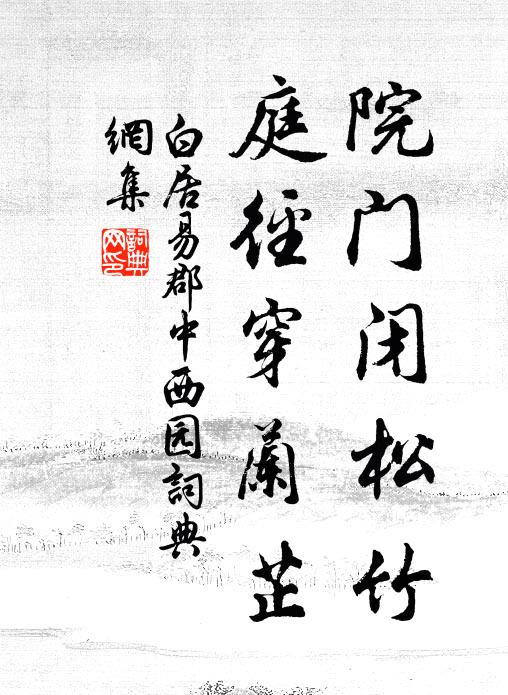 院门闭松竹
庭径穿蘭芷
白居易郡中西园詞典
網集
詞典
网印